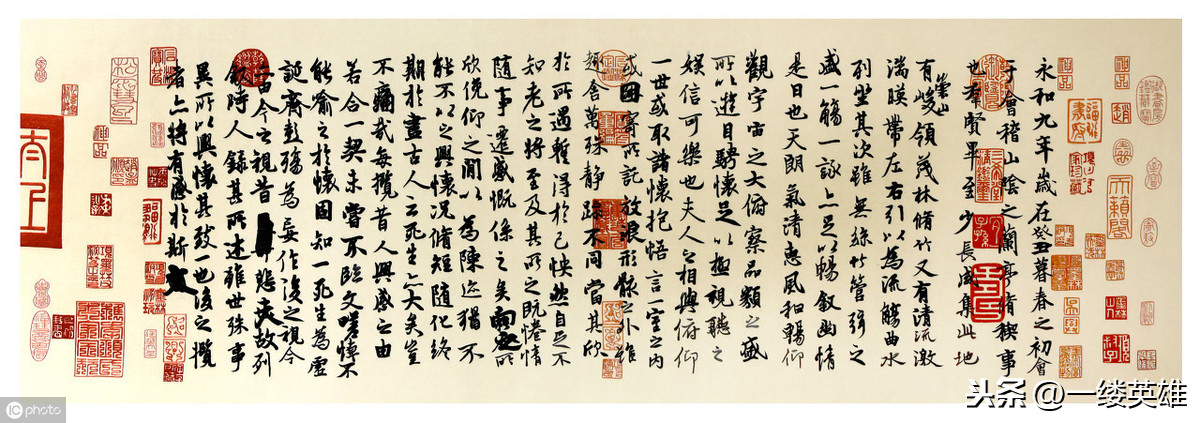 永和九年歲在癸丑暮春之初會
于會稽山陰之蘭亭脩稧事
也羣賢畢至少長咸集此地
有崇山峻領茂林脩竹又有清流激
湍暎帶左右引以為流觴曲水
列坐其次雖無絲竹管弦之
盛一觴一詠亦足以暢敘幽情
是日也天朗氣清惠風和暢仰
觀宇宙之大俯察品類之盛
所以遊目騁懷足以極視聽之
娛信可樂也夫人之相與俯仰
一世或取諸懷抱悟言一室之內
或因寄所託放浪形骸之外雖
趣舍萬殊靜躁不同當其欣
於所遇暫得於己怏然自足不
知老之將至及其所之既惓情
隨事遷感慨係之矣向之所
欣俛仰之閒以為陳迹猶不
能不以之興懷況脩短隨化終
期於盡古人云死生亦大矣豈
不痛哉每攬昔人興感之由
若合一契未嘗不臨文嗟悼不
能喻之於懷固知一死生為虛
誕齊彭殤為妄作後之視今
亦由今之視昔悲夫故列
敘時人錄其所述雖世殊事
異所以興懷其致一也後之攬
者亦將有感於斯文
頭条 @一缕英雄
IC photo